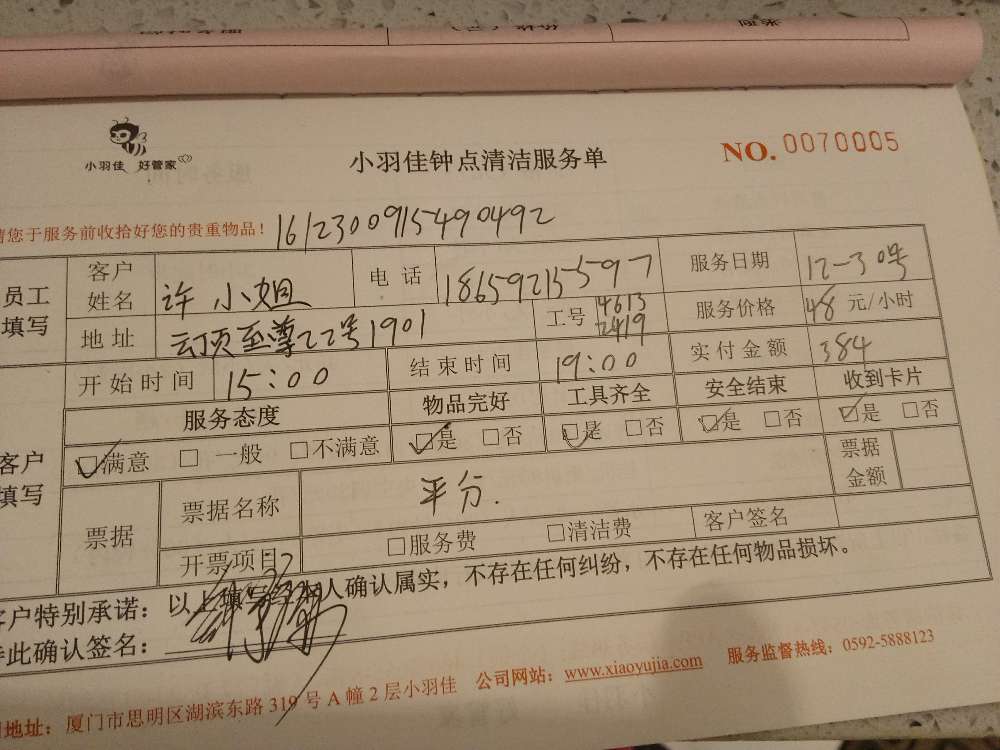 小羽佳 好管家
小羽佳钟点清洁服务单
NO. 0070005
请您于服务前收拾好您的贵重物品！ 1612300915490492
员工填写
客户姓名 许小姐 电话 18659215597 服务日期 12-30号
地址 云顶至尊22号1901 工号 4613 2419 服务价格 48 元/小时
开始时间 15:00 结束时间 19:00 实付金额 384
客户填写
服务态度 物品完好 工具齐全 安全结束 收到卡片
☑满意 □一般 □不满意 ☑是 □否 ☑是 □否 ☑是 □否 ☑是 □否
票据 票据名称 平分. 票据金额
开票项目 □服务费 □清洁费 客户签名
客户特别承诺：以上填写 本人确认属实，不存在任何纠纷，不存在任何物品损坏。
特此确认签名：
地址：厦门市思明区湖滨东路319号A幢2层小羽佳 公司网站：www.xiaoyujia.com 服务监督热线：0592-5888123